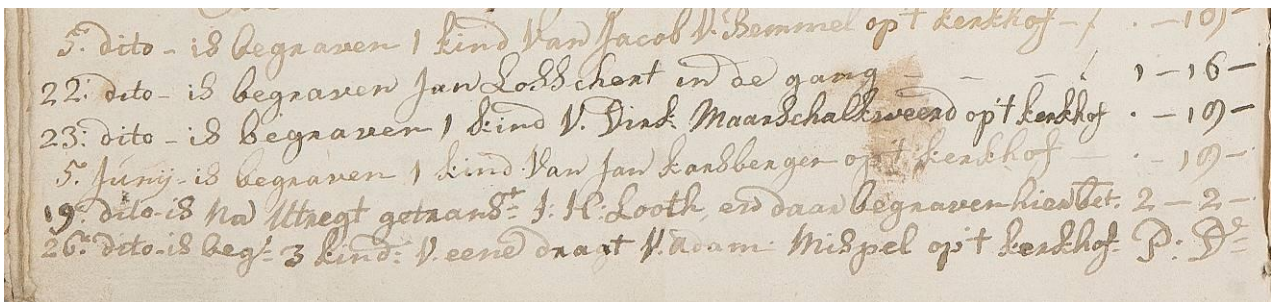 5: dito - is begraven 1 kind Van Jacob V: Bemmel op't kerkhof - / . - 19 -
22: dito - is begraven Jan Losschert in de gang - - - / 1 - 16 -
23: dito - is begraven 1 kind V. Dirk Maarschalkweerd op't kerkhof . - 19 -
5. Junij - is begraven 1 kind Van Jan karsberger op't kerkhof - . - 19 -
19: dito - is Na Utregt getranst: J: H: Looth, en daar begraven hier bet. 2 - 2 -
26: dito - is begr: 3 kind: V. eene dragt V. adam Mispel op't kerkhof - P: D: